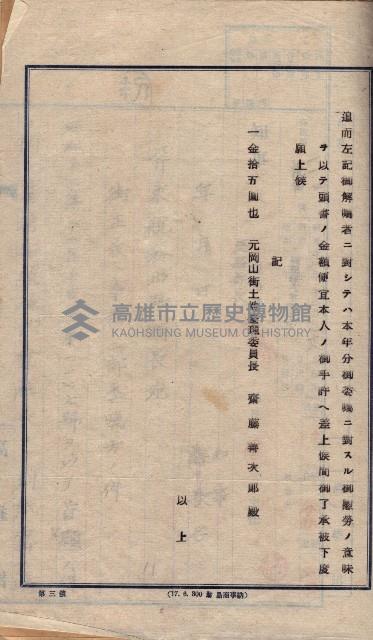 追而左記御解囑者ニ對シテハ本年分御委囑ニ對スル御慰勞ノ意味
ヲ以テ頭書ノ金額便宜本人ノ御手許ヘ差上候間御了承被下度
願上候
記
一金拾五圓也 元岡山街土地整理委員長 齋藤善次郎殿
以上
高雄市立歷史博物館
KAOHSIUNG MUSEUM OF HISTORY
第三號
(17. 6. 300 島商事納)